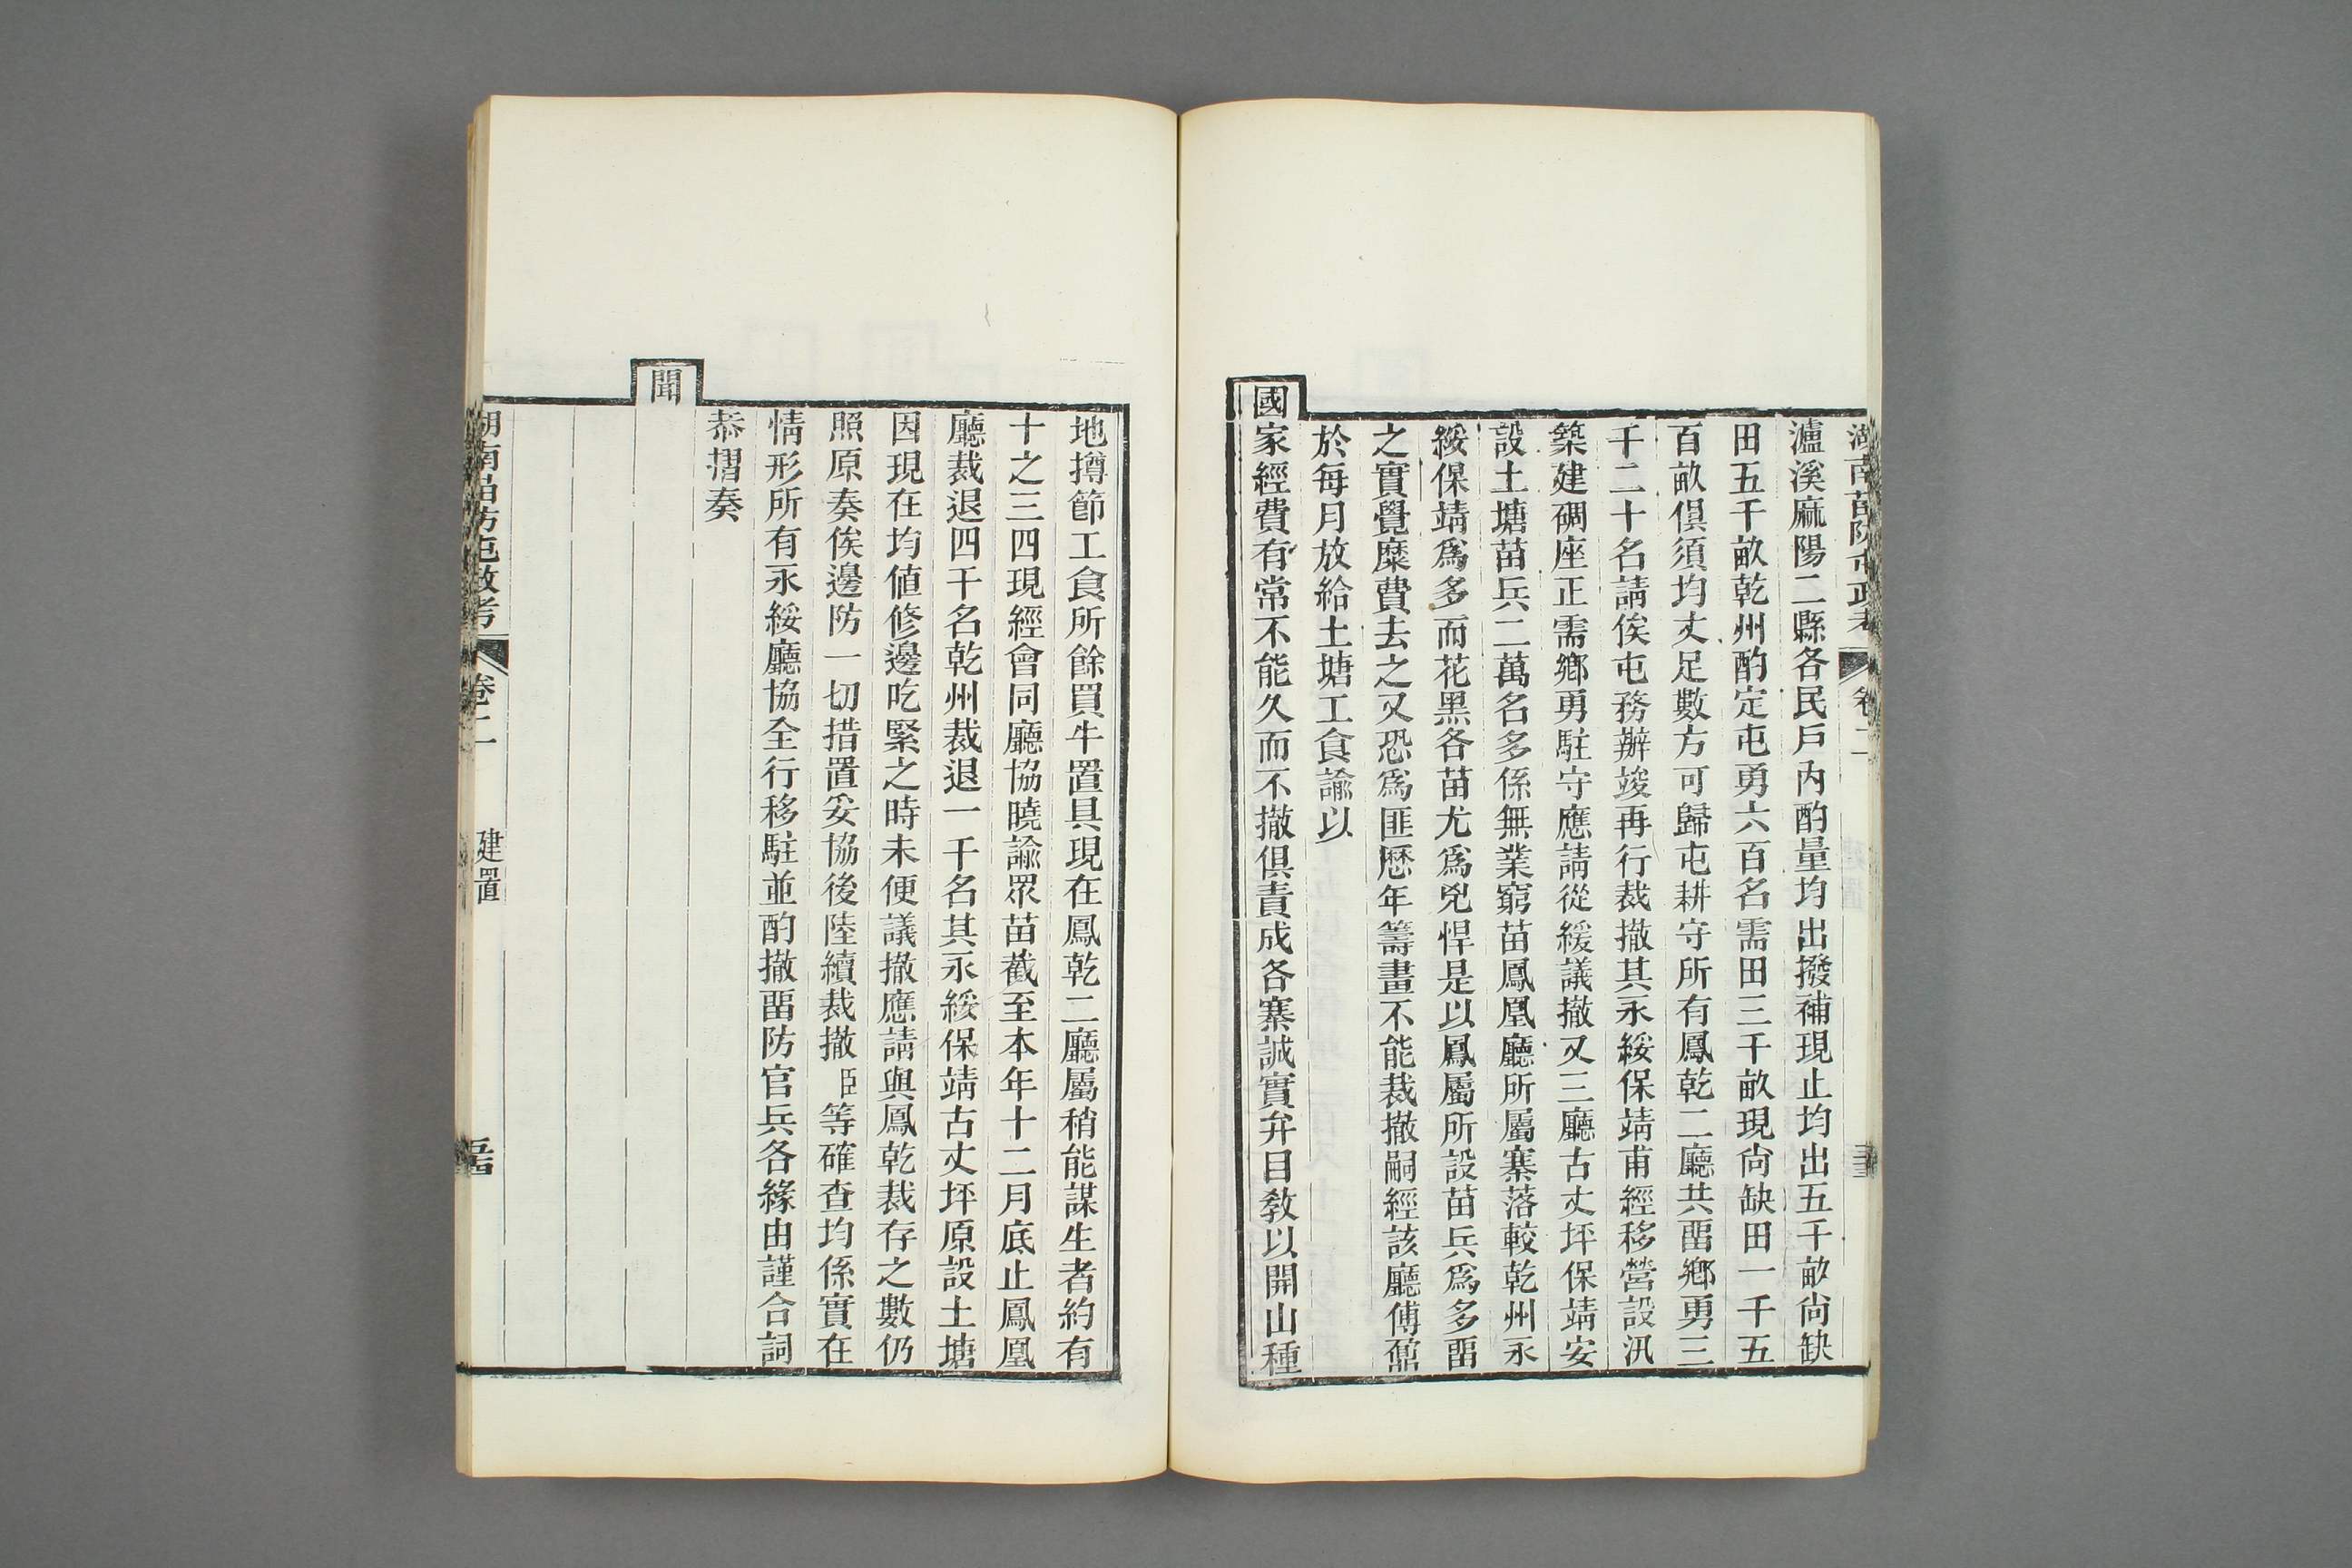 瀘溪麻陽二縣各民戶內酌量均出撥補現止均出五千畝尙缺
田五千畝乾州酌定屯勇六百名需田三千畝現尙缺田一千五
百畝俱須均丈足數方可歸屯耕守所有鳳乾二廳共畱鄉勇三
千二十名請俟屯務辦竣再行裁撤其永綏保靖甫經移營設汛
築建碉座正需鄉勇駐守應請從緩議撤又三廳古丈坪保靖安
設土塘苗兵二萬名多係無業窮苗鳳凰廳所屬寨落較乾州永
綏保靖爲多而花黑各苗尤爲兇悍是以鳳屬所設苗兵爲多畱
之實覺糜費去之又恐爲匪歷年籌畫不能裁撤嗣經該廳傅鼐
於每月放給土塘工食諭以
國家經費有常不能久而不撤俱責成各寨誠實弁目教以開山種
地撙節工食所餘買牛置具現在鳳乾二廳屬稍能謀生者約有
十之三四現經會同廳協曉諭眾苗截至本年十二月底止鳳凰
廳裁退四千名乾州裁退一千名其永綏保靖古丈坪原設土塘
因現在均値修邊吃緊之時未便議撤應請與鳳乾裁存之數仍
照原奏俟邊防一切措置妥協後陸續裁撤臣等確查均係實在
情形所有永綏廳協全行移駐並酌撤畱防官兵各緣由謹合詞
恭摺奏
聞
湖南苗防屯政考 卷二 建置